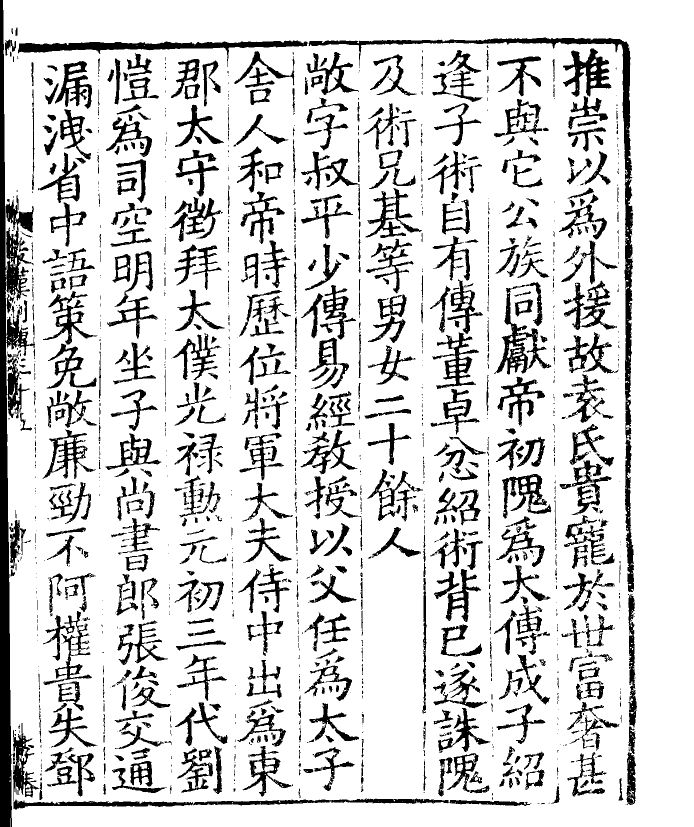 推崇以爲外援故袁氏貴寵於世富奢甚
不與它公族同獻帝初隗爲太傅成子紹
逢子術自有傳董卓忿紹術背已遂誅隗
及術兄基等男女二十餘人
敞字叔平少傳易經敎授以父任爲太子
舎人和帝時歷位將軍大夫侍中出爲東
郡太守徵拜太僕光禄勲元初三年代劉
愷爲司空明年坐子與尚書郎張俊交通
漏洩省中語策免敞廉勁不阿權貴失鄧